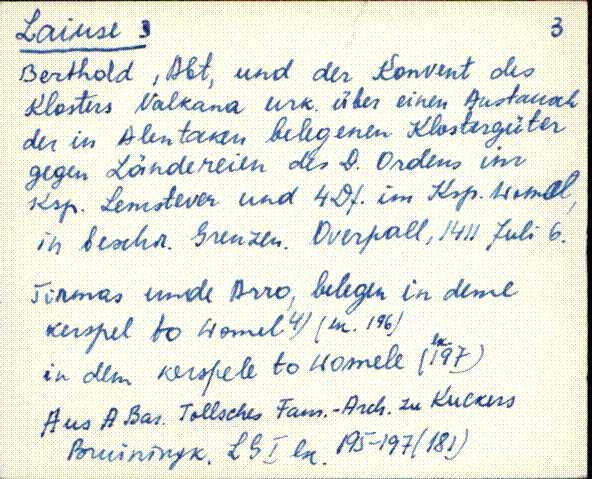 Laiuse 3 3
Berthold, Abt, und der Konvent des
Klosters Valkana urk. über einen Austausch
der in Alentaken belegenen Klostergüter
gegen Ländereien des D. Ordens im
Ksp. Lemstever und 4 Df. im Ksp. Womel,
in beschr. Grenzen. Overpall, 1411 Juli 6.
Tirmas unde Arro, belegen in deme
kerspel to Womel 4) (lk. 196)
in dem kerspele to Womele (lk. 197)
Aus A Bar. Tollsches Fam.-Arch. zu Kuckers
Bruiningk. LG I lk. 195-197 (181)